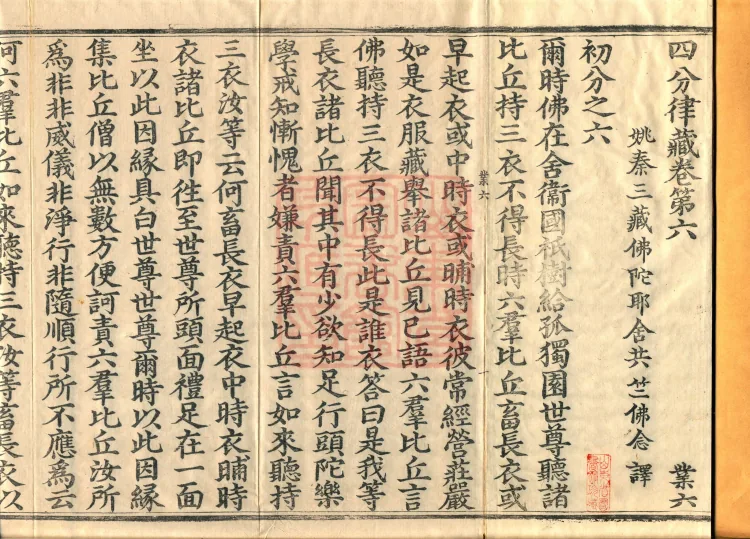 四分律藏卷第六 業六
姚秦三藏佛陀耶舍共竺佛念譯
初分之六
爾時佛在舍衞國祇樹給孤獨園世尊聽諸
比丘持三衣不得長時六羣比丘畜長衣或
業六
早起衣或中時衣或晡時衣彼常經營莊嚴
如是衣服藏舉諸比丘見已語六羣比丘言
佛聽持三衣不得長此是誰衣答曰是我等
長衣諸比丘聞其中有少欲知足行頭陀樂
學戒知慚愧者嫌責六羣比丘言如來聽持
三衣汝等云何畜長衣早起衣中時衣晡時
衣諸比丘即徃至世尊所頭面禮足在一面
坐以此因緣具白世尊世尊爾時以此因緣
集比丘僧以無數方便訶責六羣比丘汝所
爲非非威儀非淨行非隨順行所不應爲云
何六羣比丘如來聽持三衣汝等畜長衣以